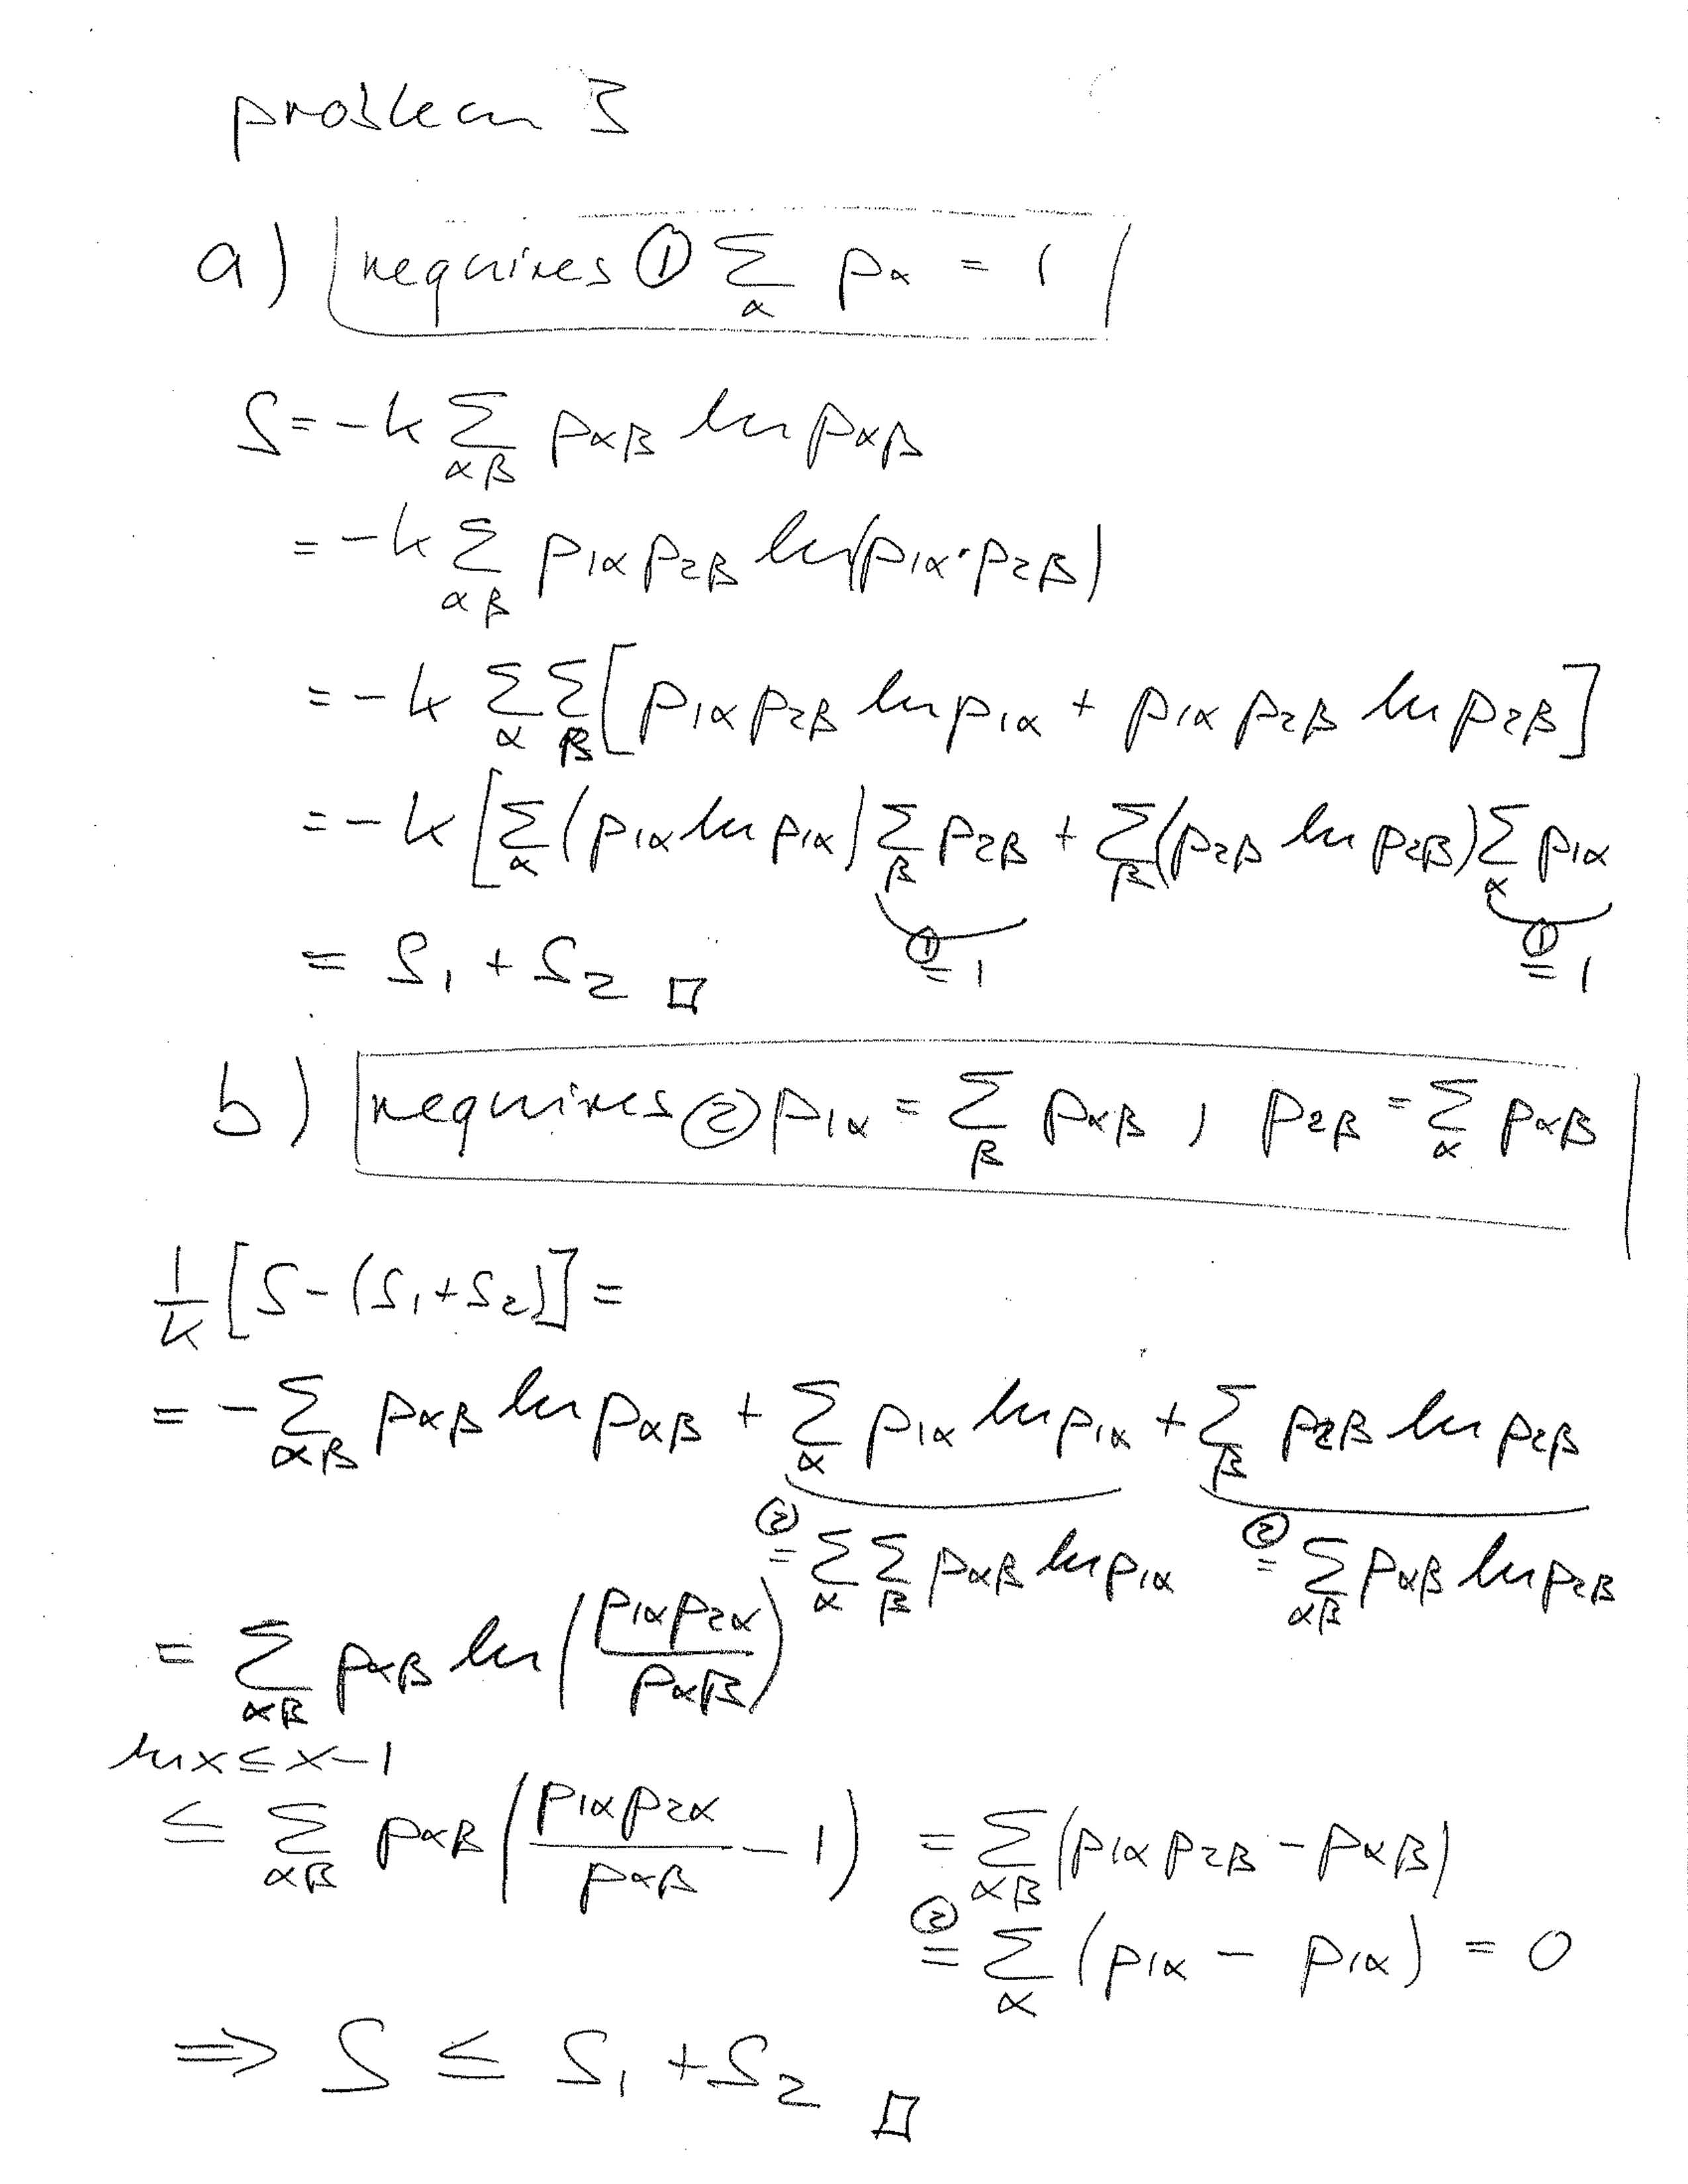 problem 3
a) requires ① ∑_α p_α = 1
S = -k ∑_{αβ} p_{αβ} ln p_{αβ}
= -k ∑_{αβ} p_{1α} p_{2β} ln(p_{1α}·p_{2β})
= -k ∑_α ∑_β [p_{1α} p_{2β} ln p_{1α} + p_{1α} p_{2β} ln p_{2β}]
= -k [∑_α (p_{1α} ln p_{1α}) ∑_β p_{2β} + ∑_β (p_{2β} ln p_{2β}) ∑_α p_{1α}
①= 1 ①= 1
= S_1 + S_2 □
b) requires ② p_{1α} = ∑_β p_{αβ} , p_{2β} = ∑_α p_{αβ}
1/k [S - (S_1 + S_2)] =
= - ∑_{αβ} p_{αβ} ln p_{αβ} + ∑_α p_{1α} ln p_{1α} + ∑_β p_{2β} ln p_{2β}
②= ∑_α ∑_β p_{αβ} ln p_{1α} ②= ∑_{αβ} p_{αβ} ln p_{2β}
= ∑_{αβ} p_{αβ} ln (p_{1α} p_{2α} / p_{αβ})
ln x ≤ x - 1
≤ ∑_{αβ} p_{αβ} (p_{1α} p_{2α} / p_{αβ} - 1) = ∑_{αβ} (p_{1α} p_{2β} - p_{αβ})
②= ∑_α (p_{1α} - p_{1α}) = 0
⇒ S ≤ S_1 + S_2 □